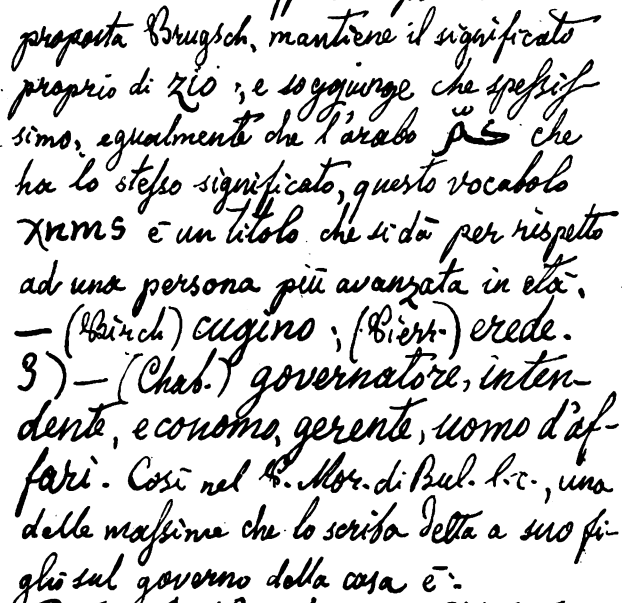 proposta Brugsch, mantiene il significato
proprio di zio; e soggiunge che spessis
simo, egualmente che l'arabo عمّ che
ha lo stesso significato, questo vocabolo
χnms è un titolo che si dà per rispetto
ad una persona più avanzata in età.
— (Birch) cugino; (Pierr.) erede.
3) — (Chab.) governatore, inten-
dente, economo, gerente, uomo d'af-
fari. Così nel P. Mor. di Bul. l.c., una
delle massime che lo scriba detta a suo fi-
glio sul governo della casa è: